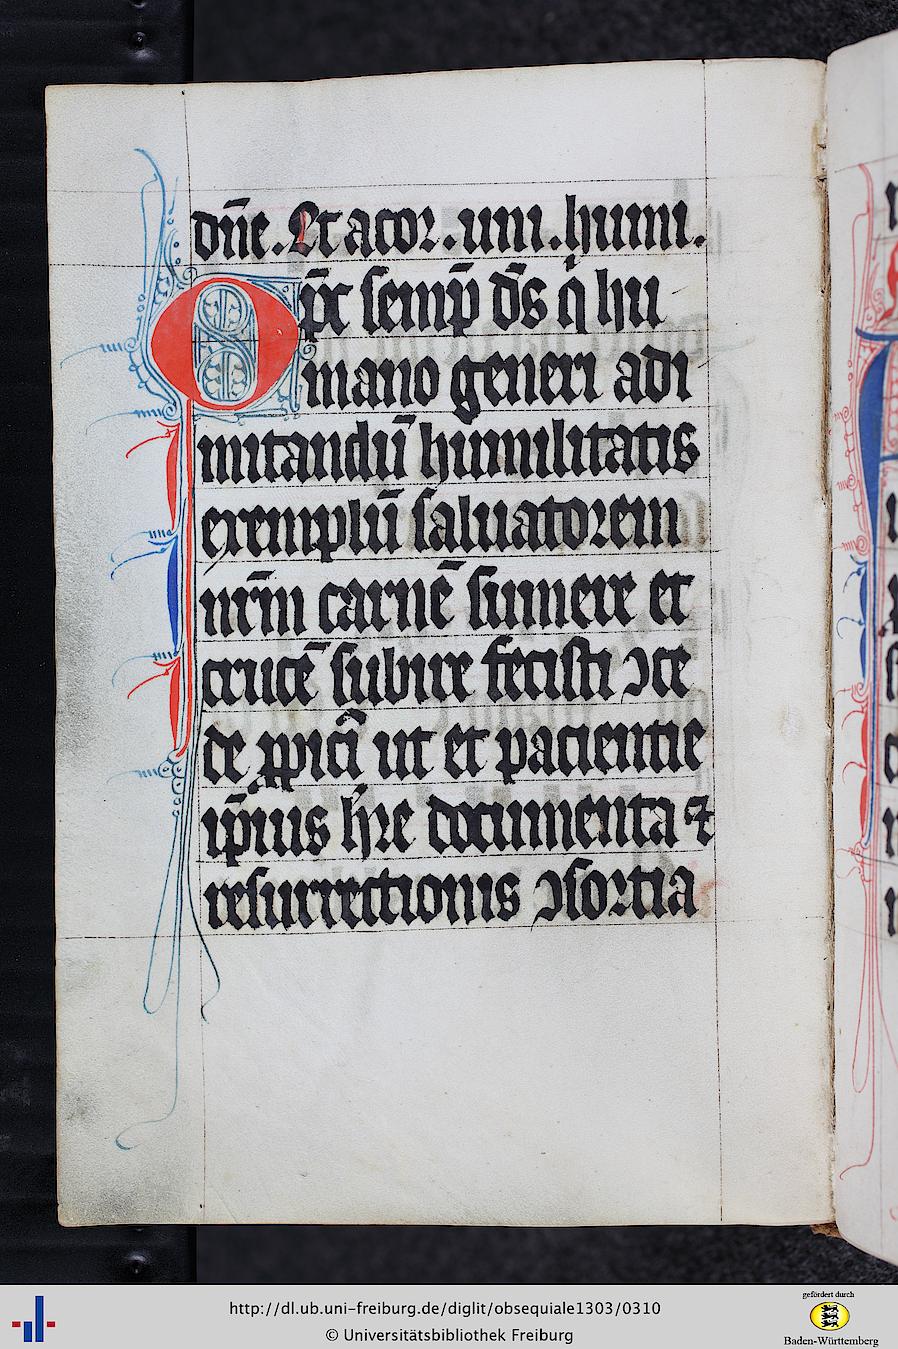 dn̄e. Et acor. uni. humi.
Op̄c semp̄ ds̄ q̇ hu
mano generi adi
mitandū humilitatis
exemplū saluatorem
nr̄m carnē sumere et
crucē subire fecisti ꝯce
de ꝓpici ut et pacientie
ip̄ius hr̄e documenta ⁊
resurrectionis ꝯsorcia
http://dl.ub.uni-freiburg.de/diglit/obsequiale1303/0310
© Universitätsbibliothek Freiburg
gefördert durch
Baden-Württemberg